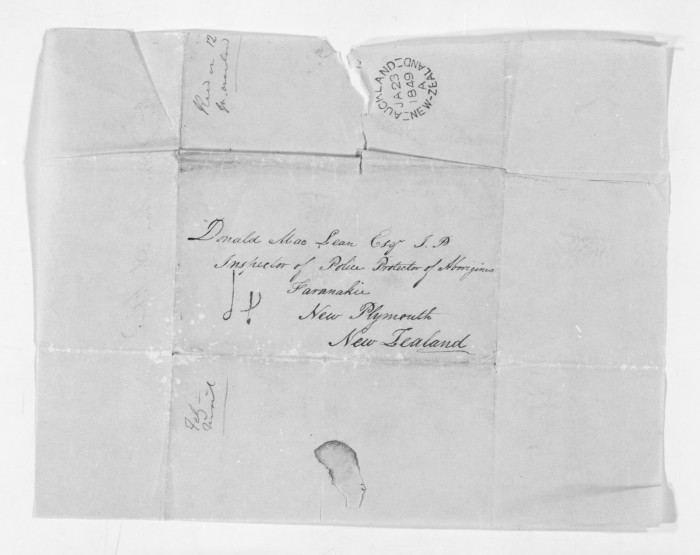 AUCKLAND
JA 23
1849
A
NEW-ZEALAND
Donald Mac Lean Esqr J. P
Inspector of Police Protector of Aborigines
Taranakie
New Plymouth
New Zealand